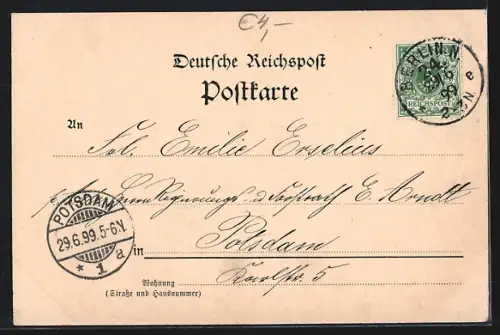 €4,-
Deutsche Reichspost
Postkarte
BERLIN.N.
99
REICHSPOST
An
Frl. Emilie Erselius
Herrn Regierungs- u. Forstrath E. Arndt
POTSDAM
29.6.99.5-6N.
* 1 a
in
Potsdam
Wohnung
(Straße und Hausnummer)
Karlstr. 5